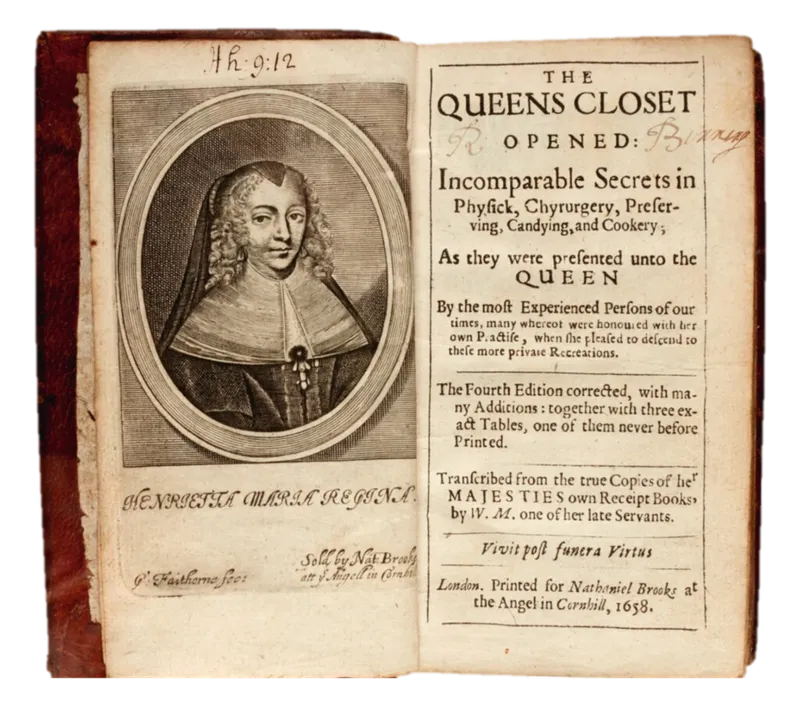 Ah. 9:12
HENRIETTA MARIA REGINA.
Sold by Nat Brooks
att yᵉ Angell in Cornhil
Gᵗ. Faithorne fec:
THE
QUEENS CLOSET
OPENED:
R Binning
Incomparable Secrets in
Phyſick, Chyrurgery, Preſer-
ving, Candying, and Cookery;
As they were preſented unto the
QUEEN
By the moſt Experienced Perſons of our
times, many whereof were honoured with her
own Practiſe, when ſhe pleaſed to deſcend to
theſe more private Recreations.
The Fourth Edition corrected, with ma-
ny Additions: together with three ex-
act Tables, one of them never before
Printed.
Tranſcribed from the true Copies of her
MAJESTIES own Receipt Books,
by W. M. one of her late Servants.
Vivit poſt funera Virtus
London. Printed for Nathaniel Brooks at
the Angel in Cornhill, 1658.